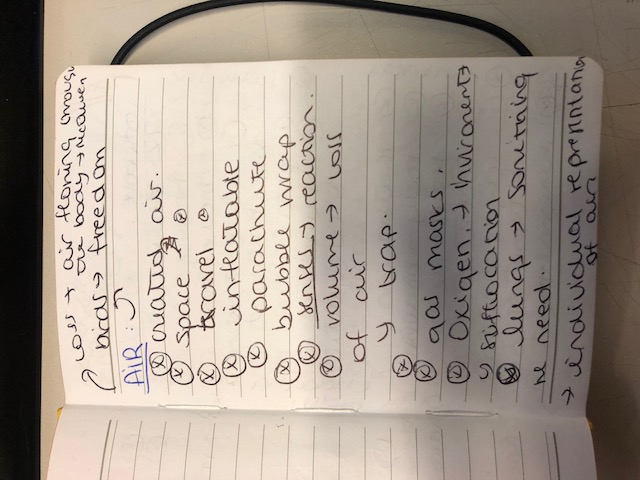 loss → air flowing through
the body → heaven
birds → freedom
AIR :)
created air.
space
travel
inflatable
parachute
bubble wrap
senses → reaction.
volume → loss
of air
↳ trap.
gas masks.
Oxigen. → Invironent →
↳ suffocation
lungs → something
we need.
→ individual representation
of air